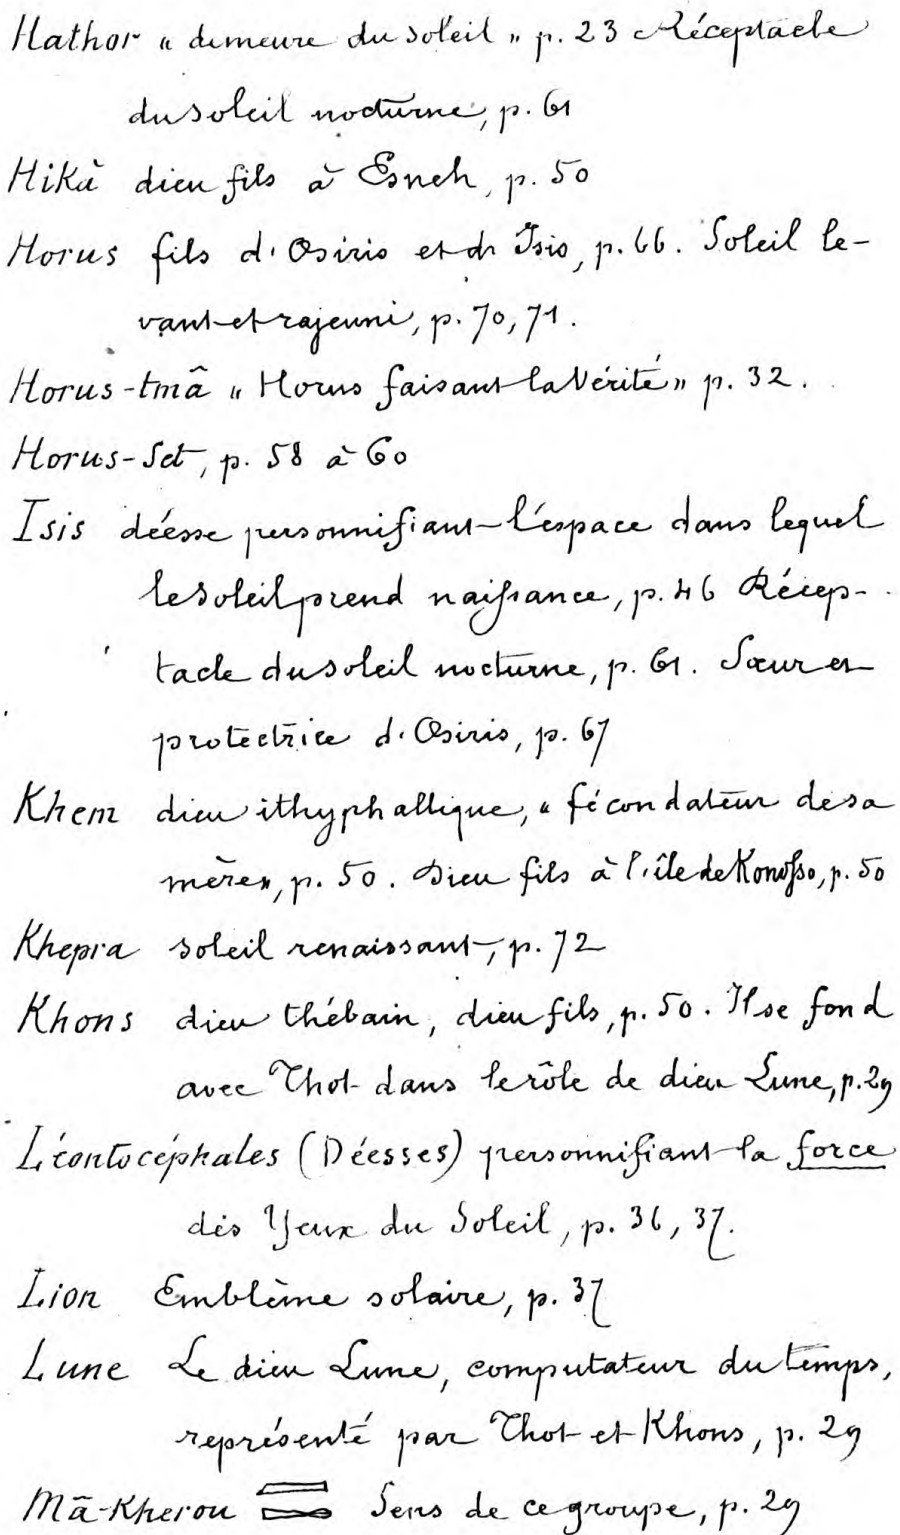 Hathor « demeure du soleil » p. 23 Réceptacle
du soleil nocturne, p. 61
Hikâ dieu fils à Esneh, p. 50
Horus fils d'Osiris et d'Isis, p. 66. Soleil le-
vant et rajeuni, p. 70, 71.
Horus-tmâ « Horus faisant la Vérité » p. 32.
Horus-Set, p. 58 à 60
Isis déesse personnifiant l'espace dans lequel
le soleil prend naissance, p. 46 Récep-
tacle du soleil nocturne, p. 61. Sœur et
protectrice d'Osiris, p. 67
Khem dieu ithyphallique, « fécondateur de sa
mère », p. 50. Dieu fils à l'île de Konosso, p. 50
Khepra soleil renaissant, p. 72
Khons dieu thébain, dieu fils, p. 50. Il se fond
avec Thot dans le rôle de dieu Lune, p. 29
Léontocéphales (Déesses) personnifiant la force
des Yeux du Soleil, p. 36, 37.
Lion Emblème solaire, p. 37
Lune Le dieu Lune, computateur du temps,
représenté par Thot et Khons, p. 29
Mâ-Kherou Sens de ce groupe, p. 29